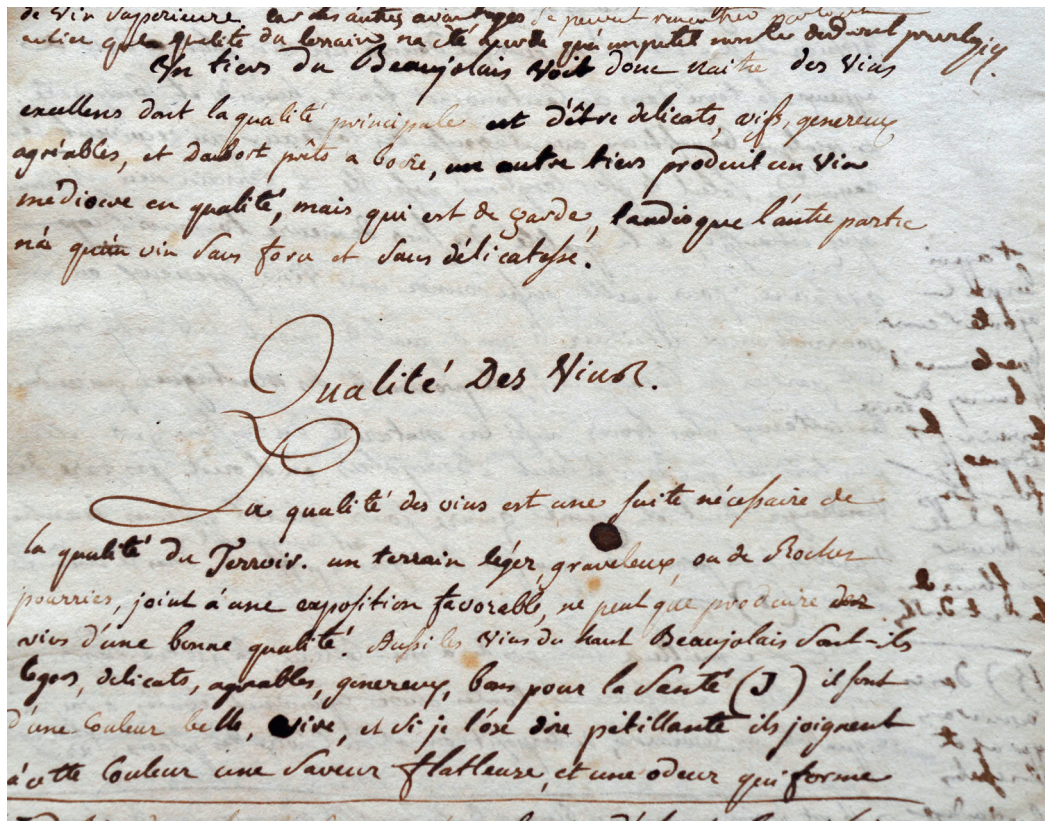 de vin supérieure, car les autres avantages se peuvent rencontrer partout
qualité du terrain n'a été
Un tiers du Beaujolais voit donc naitre des vins
excellens dont la qualité principale est d'être delicats, vifs, genereux
agréables, et dabort prêts a boire, un autre tiers produit un vin
mediocre en qualité, mais qui est de garde, tandisque l'autre partie
n'a qu'un vin sans force et sans délicatesse.
Qualité Des Vins.
La qualité des vins est une suite nécessaire de
la qualité du Terroir. un terrain léger, graveleux, ou de Roches
pourries, joint à une exposition favorable, ne peut que produire des
vins d'une bonne qualité. Aussi les vins du haut Beaujolais sont-ils
legers, delicats, agreables, genereux, bons pour la santé (J) il sont
d'une couleur belle, vive, et si je l'ose dire pétillante ils joignent
à cette couleur une saveur flatteuse, et une odeur qui forme